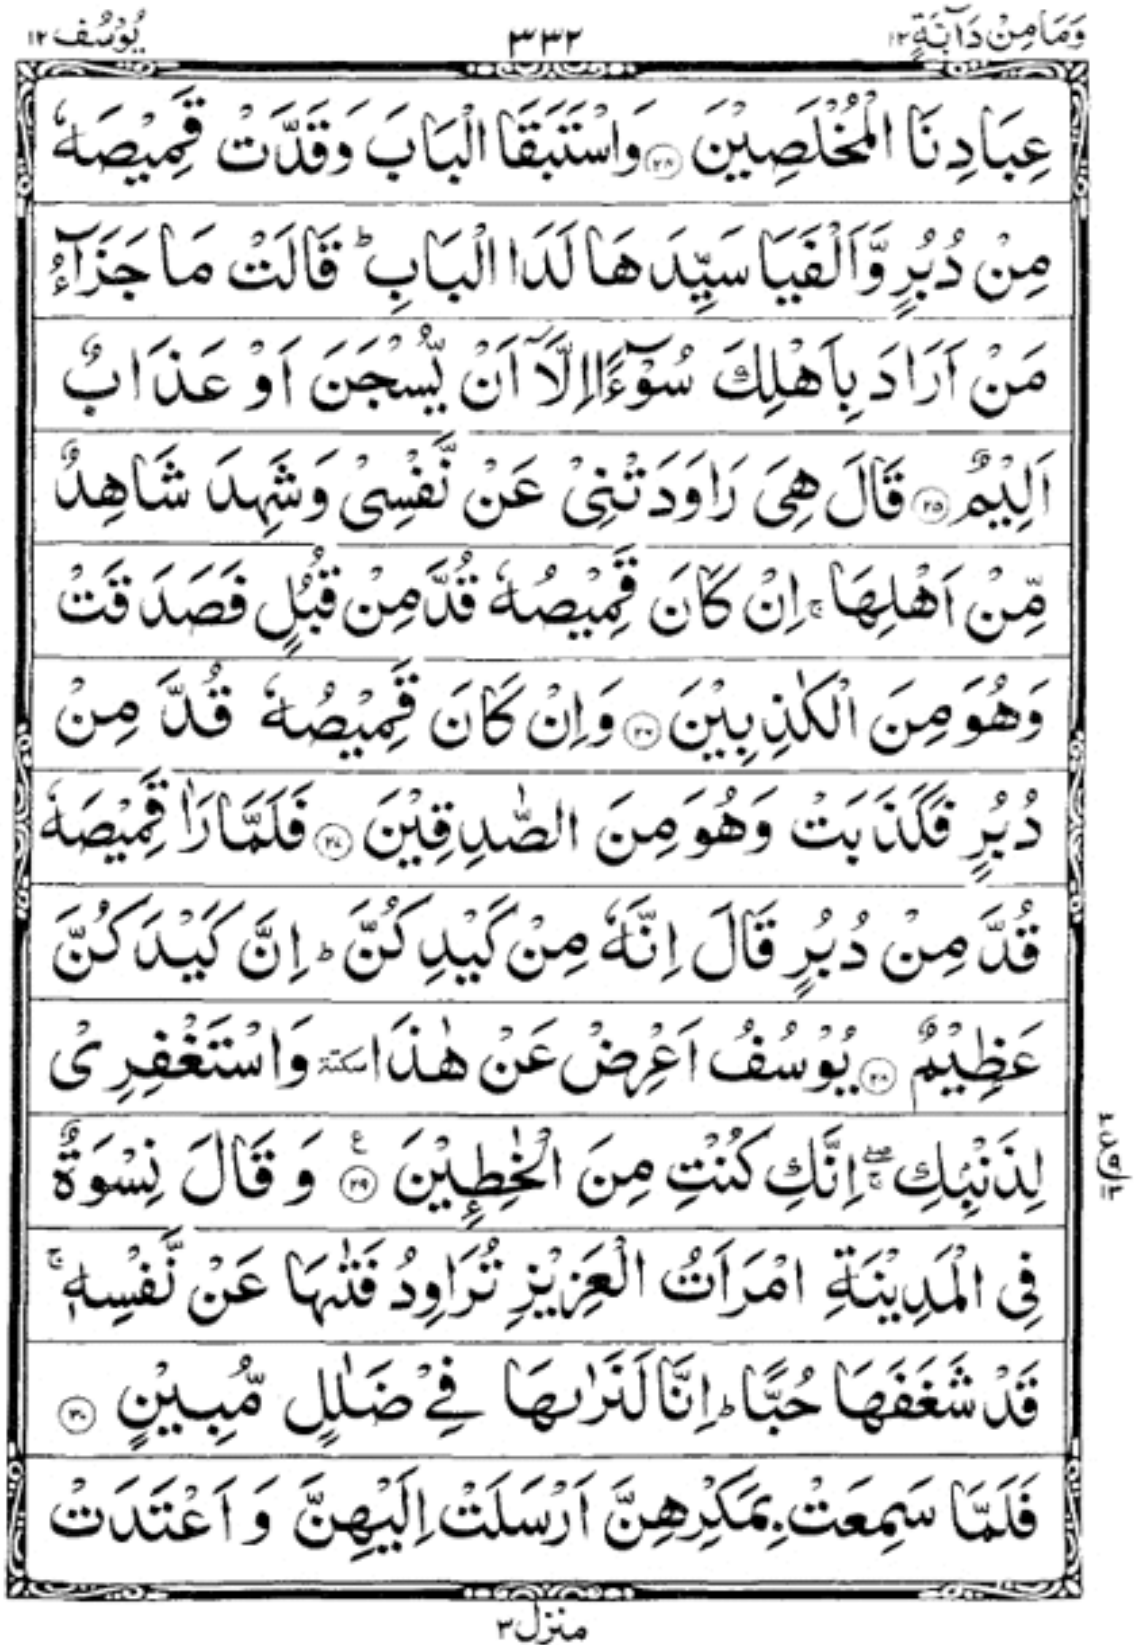 وَمَا مِنْ دَآبَّةٍ ١٢ ٣٣٢ يُوْسُف ١٢
عِبَادِنَا الْمُخْلَصِيْنَ ﴿٢٤﴾ وَاسْتَبَقَا الْبَابَ وَقَدَّتْ قَمِيْصَهٗ
مِنْ دُبُرٍ وَّاَلْفَيَا سَيِّدَهَا لَدَا الْبَابِ ؕ قَالَتْ مَا جَزَآءُ
مَنْ اَرَادَ بِاَهْلِكَ سُوْٓءًا اِلَّاۤ اَنْ يُّسْجَنَ اَوْ عَذَابٌ
اَلِيْمٌ ﴿٢٥﴾ قَالَ هِىَ رَاوَدَتْنِىْ عَنْ نَّفْسِىْ وَشَهِدَ شَاهِدٌ
مِّنْ اَهْلِهَا ۚ اِنْ كَانَ قَمِيْصُهٗ قُدَّ مِنْ قُبُلٍ فَصَدَقَتْ
وَهُوَ مِنَ الْكٰذِبِيْنَ ﴿٢٦﴾ وَاِنْ كَانَ قَمِيْصُهٗ قُدَّ مِنْ
دُبُرٍ فَكَذَبَتْ وَهُوَ مِنَ الصّٰدِقِيْنَ ﴿٢٧﴾ فَلَمَّا رَاٰ قَمِيْصَهٗ
قُدَّ مِنْ دُبُرٍ قَالَ اِنَّهٗ مِنْ كَيْدِكُنَّ ؕ اِنَّ كَيْدَكُنَّ
عَظِيْمٌ ﴿٢٨﴾ يُوْسُفُ اَعْرِضْ عَنْ هٰذَا سكتة وَاسْتَغْفِرِىْ
لِذَنْۢبِكِ ۖۚ اِنَّكِ كُنْتِ مِنَ الْخٰطِـِٕيْنَ ﴿٢٩﴾ ع وَقَالَ نِسْوَةٌ
فِى الْمَدِيْنَةِ امْرَاَتُ الْعَزِيْزِ تُرَاوِدُ فَتٰٮهَا عَنْ نَّفْسِهٖ ۚ
قَدْ شَغَفَهَا حُبًّا ؕ اِنَّا لَنَرٰٮهَا فِىْ ضَلٰلٍ مُّبِيْنٍ ﴿٣٠﴾
فَلَمَّا سَمِعَتْ بِمَكْرِهِنَّ اَرْسَلَتْ اِلَيْهِنَّ وَاَعْتَدَتْ
منزل ٣